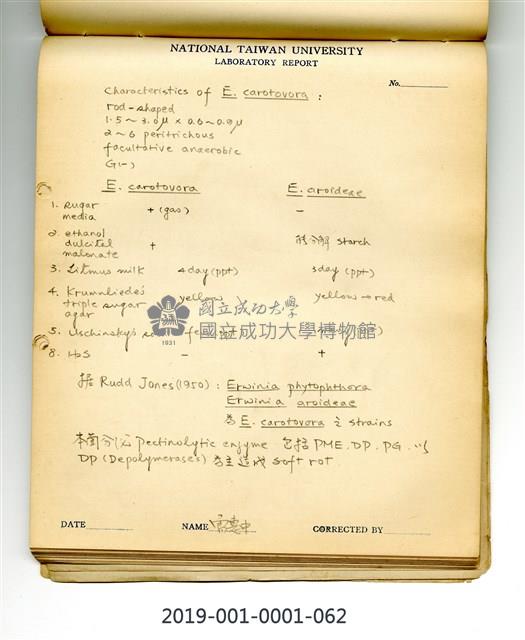 NATIONAL TAIWAN UNIVERSITY
LABORATORY REPORT
No.
Characteristics of E. carotovora :
rod-shaped
1.5 ~ 3.0μ × 0.6~0.9μ
2 ~ 6 peritrichous
facultative anaerobic
G(-)
E. carotovora E. aroideae
1. sugar media + (gas) -
2. ethanol dulcitol malonate + 能分解 starch
3. Litmus milk 4 day (ppt) 3 day (ppt)
4. Krumwiede's triple sugar agar yellow yellow → red
5. Uschinsky's
8. H₂S - +
據 Rudd Jones (1950) : Erwinia phytophthora
Erwinia aroideae
為 E. carotovora 之 strains
本菌分泌 Pectinolytic enzyme 包括 PME. DP. PG. 以
DP (Depolymerases) 為主造成 soft rot.
國立成功大學
國立成功大學博物館
1931
DATE NAME CORRECTED BY
2019-001-0001-062